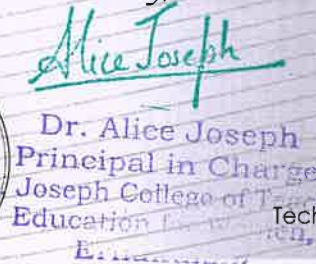 Alice Joseph
Dr. Alice Joseph
Principal in Charge
Joseph College of
Education
Tech